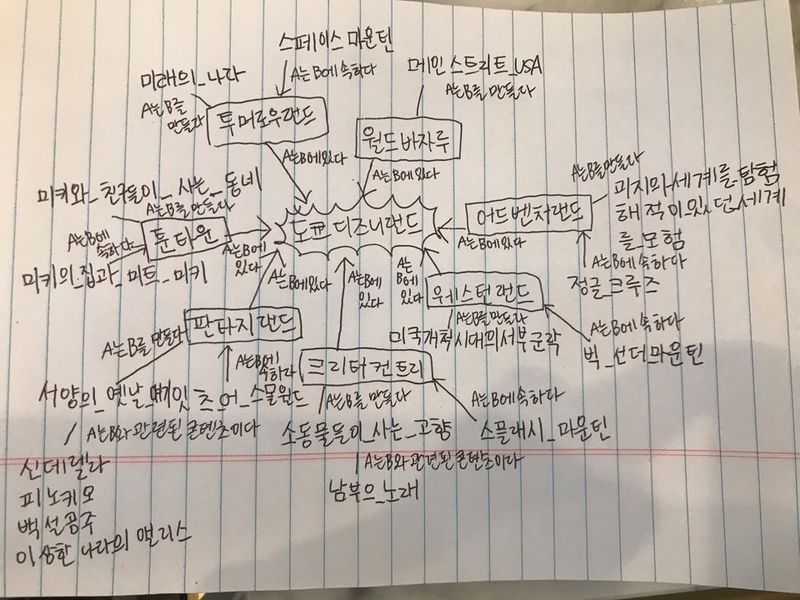 스페이스 마운틴
A는 B에 속하다
미래의_나라
A는 B를
만들다
투머로우랜드
A는 B에 있다
메인 스트리트_USA
A는 B를 만들다
월드바자루
A는 B에 있다
미키와_친구들이_사는_동네
A는 B를 만들다
툰타운
A는 B에
속하다
A는 B에
있다
미키의_집과_미트_미키
도쿄 디즈니랜드
A는 B를 만들다
어드벤처랜드
A는 B에 있다
미지의_세계를_탐험
해적이_있던_세계
를_모험
A는 B에 속하다
정글_크루즈
A는 B에 있다
판타지랜드
A는 B를 만들다
A는 B에
속하다
서양의_옛날_얘기
잇_츠_어_스몰월드
A는 B와 관련된 콘텐츠이다
신데렐라
피노키오
백설공주
이상한 나라의 앨리스
A는 B에
있다
크리터컨트리
A는 B를 만들다
소동물들이_사는_고향
A는 B와 관련된 콘텐츠이다
남부의_노래
A는 B에 속하다
스플래시_마운틴
A는
B에
있다
웨스턴랜드
A는 B를 만들다
미국개척시대의서부군락
A는 B에 속하다
빅_선더마운틴